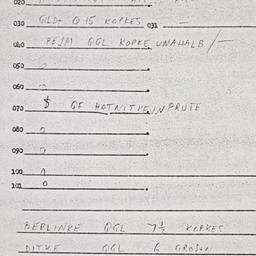 020
030 GLD- Q 15 KOPKES 031 —
040 PEJM QGL KOPKE UNAHALB /—
050 0
060 0
070 $ QF HOTNITKEINPRUTE
080 0
090 0
100 0
101 0
BERLINKE QGL 7½ KOPKES
DITKE QGL 6 GROSCH